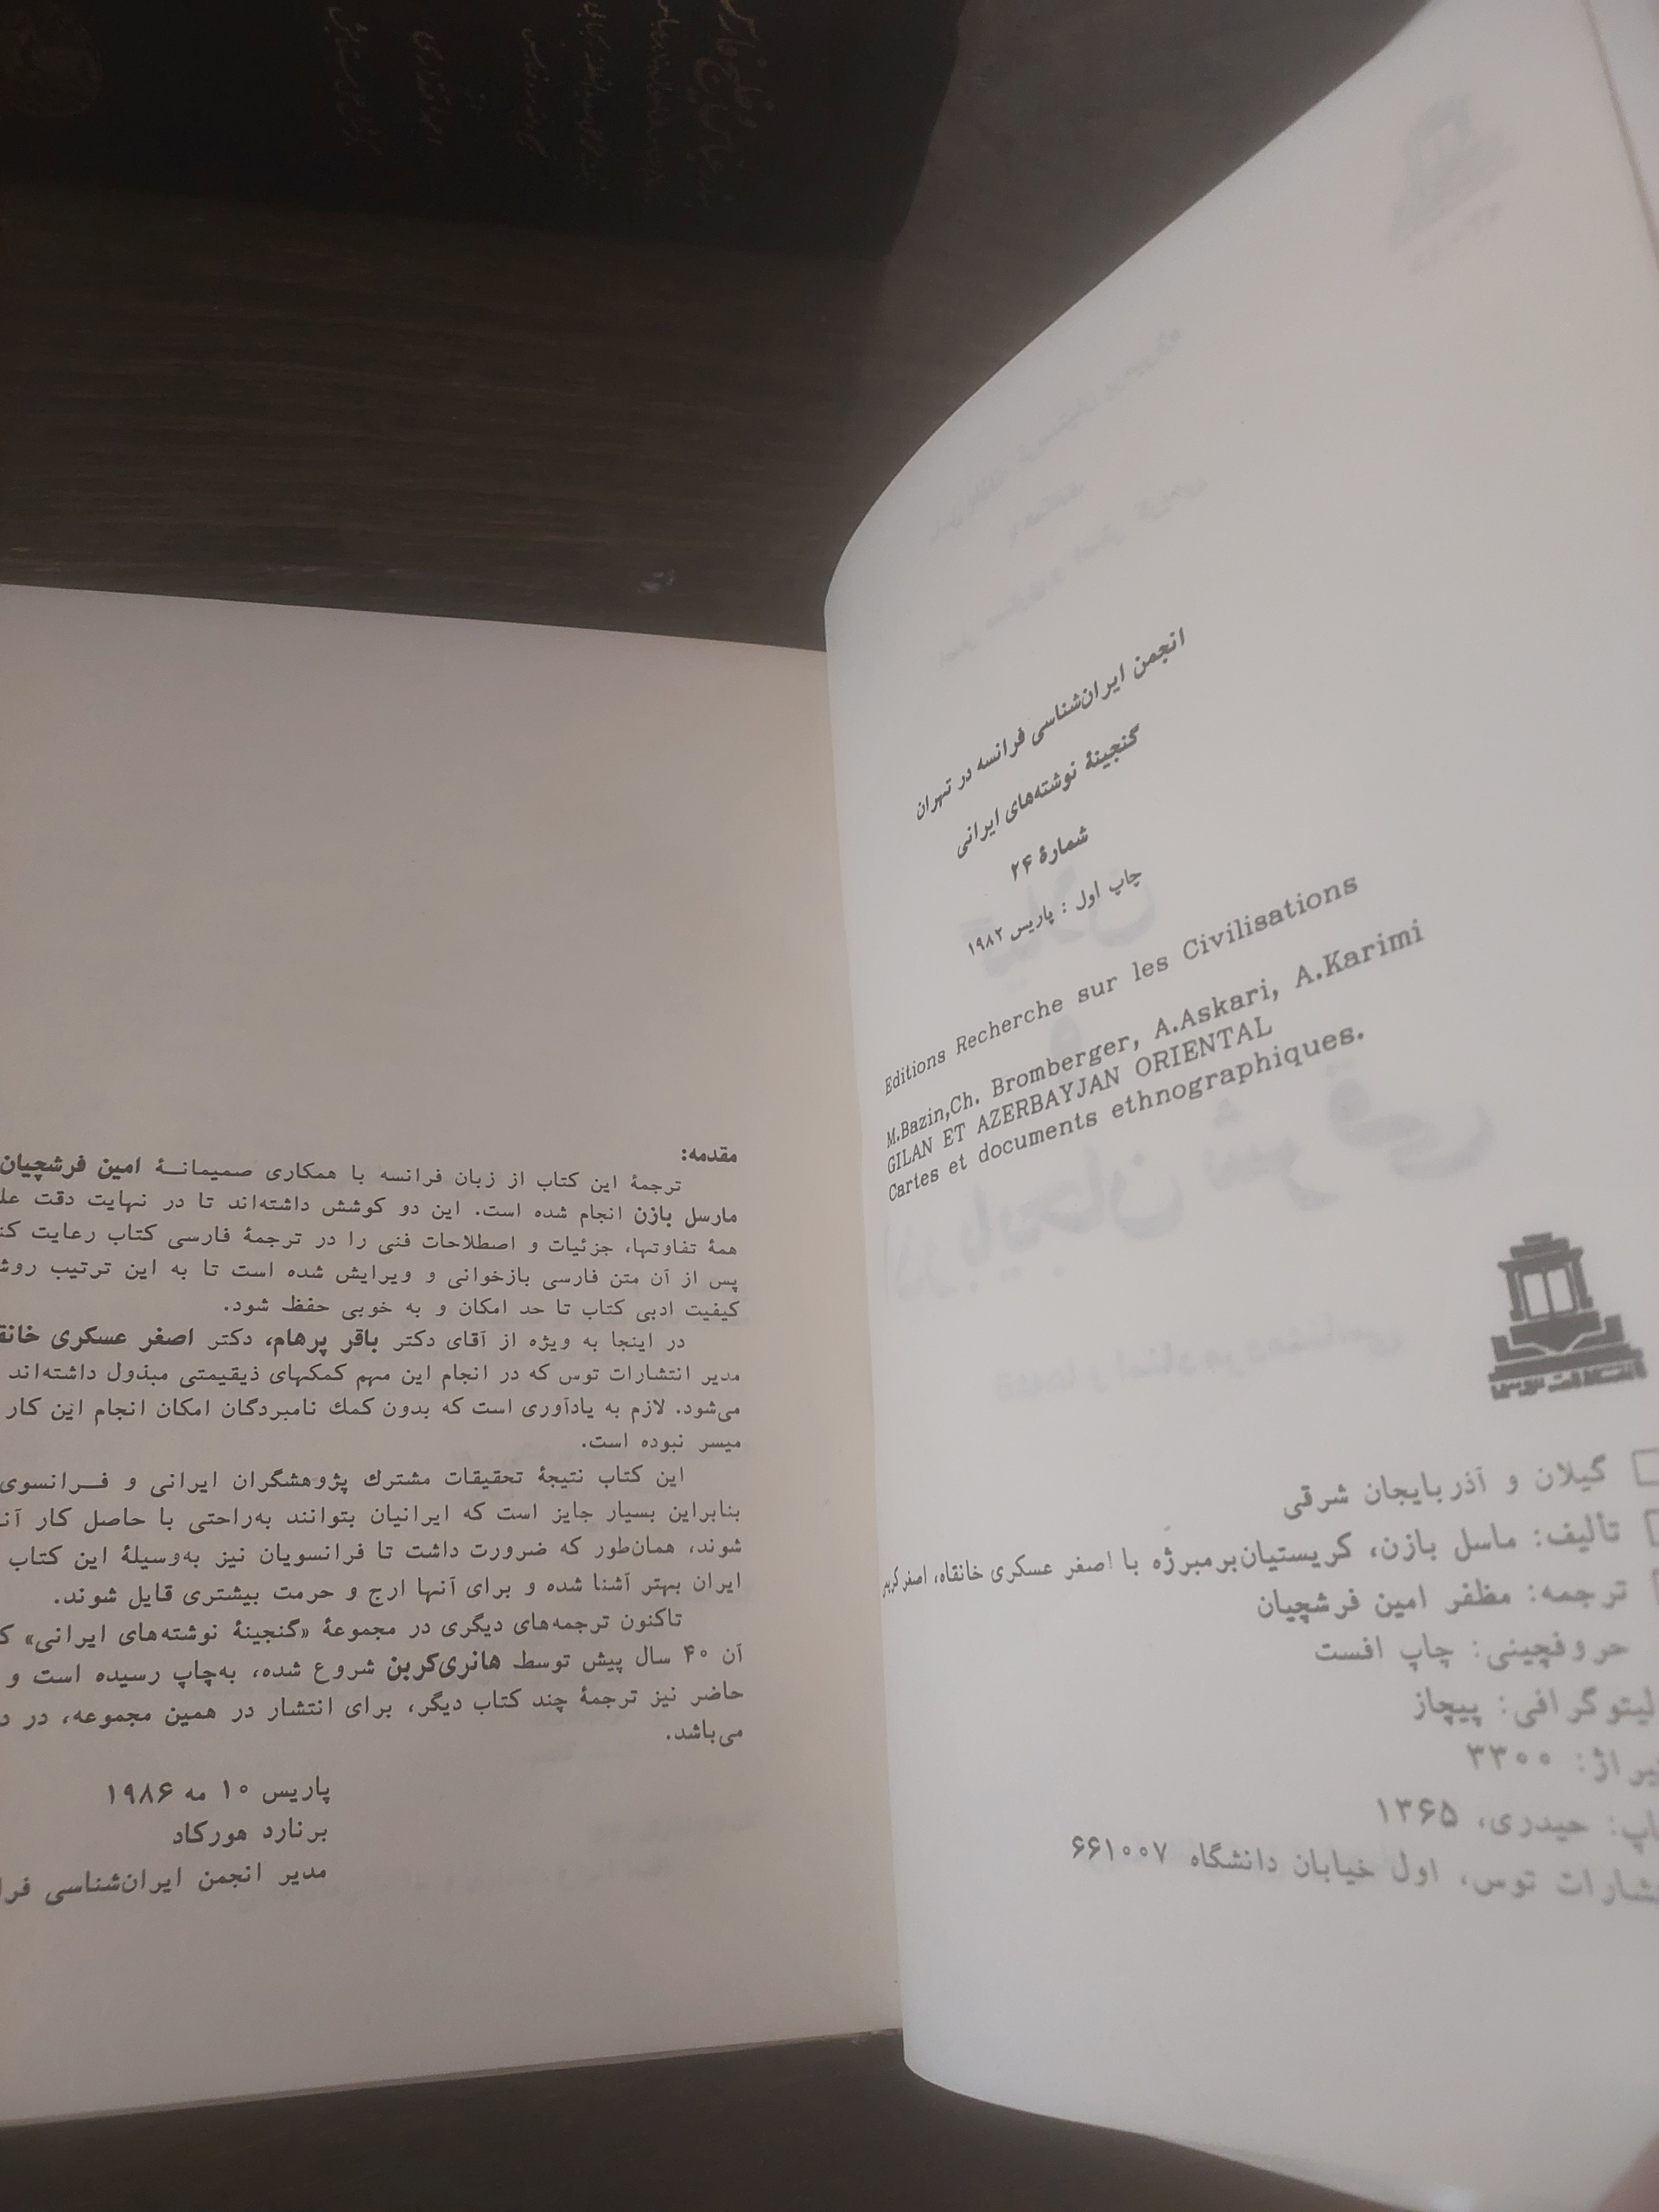 انجمن ایران‌شناسی فرانسه در تهران
گنجینهٔ نوشته‌های ایرانی
شمارهٔ ۲۶
چاپ اول : پاریس ۱۹۸۲
Editions Recherche sur les Civilisations
M.Bazin,Ch. Bromberger, A.Askari, A.Karimi
GILAN ET AZERBAYJAN ORIENTAL
Cartes et documents ethnographiques.
انتشارات توس
گیلان و آذربایجان شرقی
تألیف: ماسل بازن، کریستیان‌برمبرژه با اصغر عسکری خانقاه، اصغر
ترجمه: مظفر امین فرشچیان
حروفچینی: چاپ افست
لیتوگرافی: پیچاز
۳۳۰۰
حیدری، ۱۳۶۵
توس، اول خیابان دانشگاه ۶۶۱۰۰۷
مقدمه:
ترجمهٔ این کتاب از زبان فرانسه با همکاری صمیمانـــهٔ امین فرشچیان
مارسل بازن انجام شده است. این دو کوشش داشته‌اند تا در نهایت دقت
همهٔ تفاوتها، جزئیات و اصطلاحات فنی را در ترجمهٔ فارسی کتاب رعایت
پس از آن متن فارسی بازخوانی و ویرایش شده است تا به این ترتیب
کیفیت ادبی کتاب تا حد امکان و به خوبی حفظ شود.
در اینجا به ویژه از آقای دکتر باقر پرهام، دکتر اصغر عسکری
مدیر انتشارات توس که در انجام این مهم کمکهای ذیقیمتی مبذول داشته‌اند
می‌شود. لازم به یادآوری است که بدون کمك نامبردگان امکان انجام این کار
میسر نبوده است.
این کتاب نتیجهٔ تحقیقات مشترك پژوهشگران ایرانی و فـــرانسوی
بنابراین بسیار جایز است که ایرانیان بتوانند به‌راحتی با حاصل کار
شوند، همان‌طور که ضرورت داشت تا فرانسویان نیز به‌وسیلهٔ این کتاب
ایران بهتر آشنا شده و برای آنها ارج و حرمت بیشتری قایل شوند.
تاکنون ترجمه‌های دیگری در مجموعهٔ «گنجینهٔ نوشته‌های ایرانی»
آن ۴۰ سال پیش توسط هانری‌کربن شروع شده، به‌چاپ رسیده است و
حاضر نیز ترجمهٔ چند کتاب دیگر، برای انتشار در همین مجموعه، در
می‌باشد.
پاریس ۱۰ مه ۱۹۸۶
برنارد هورکاد
مدیر انجمن ایران‌شناسی